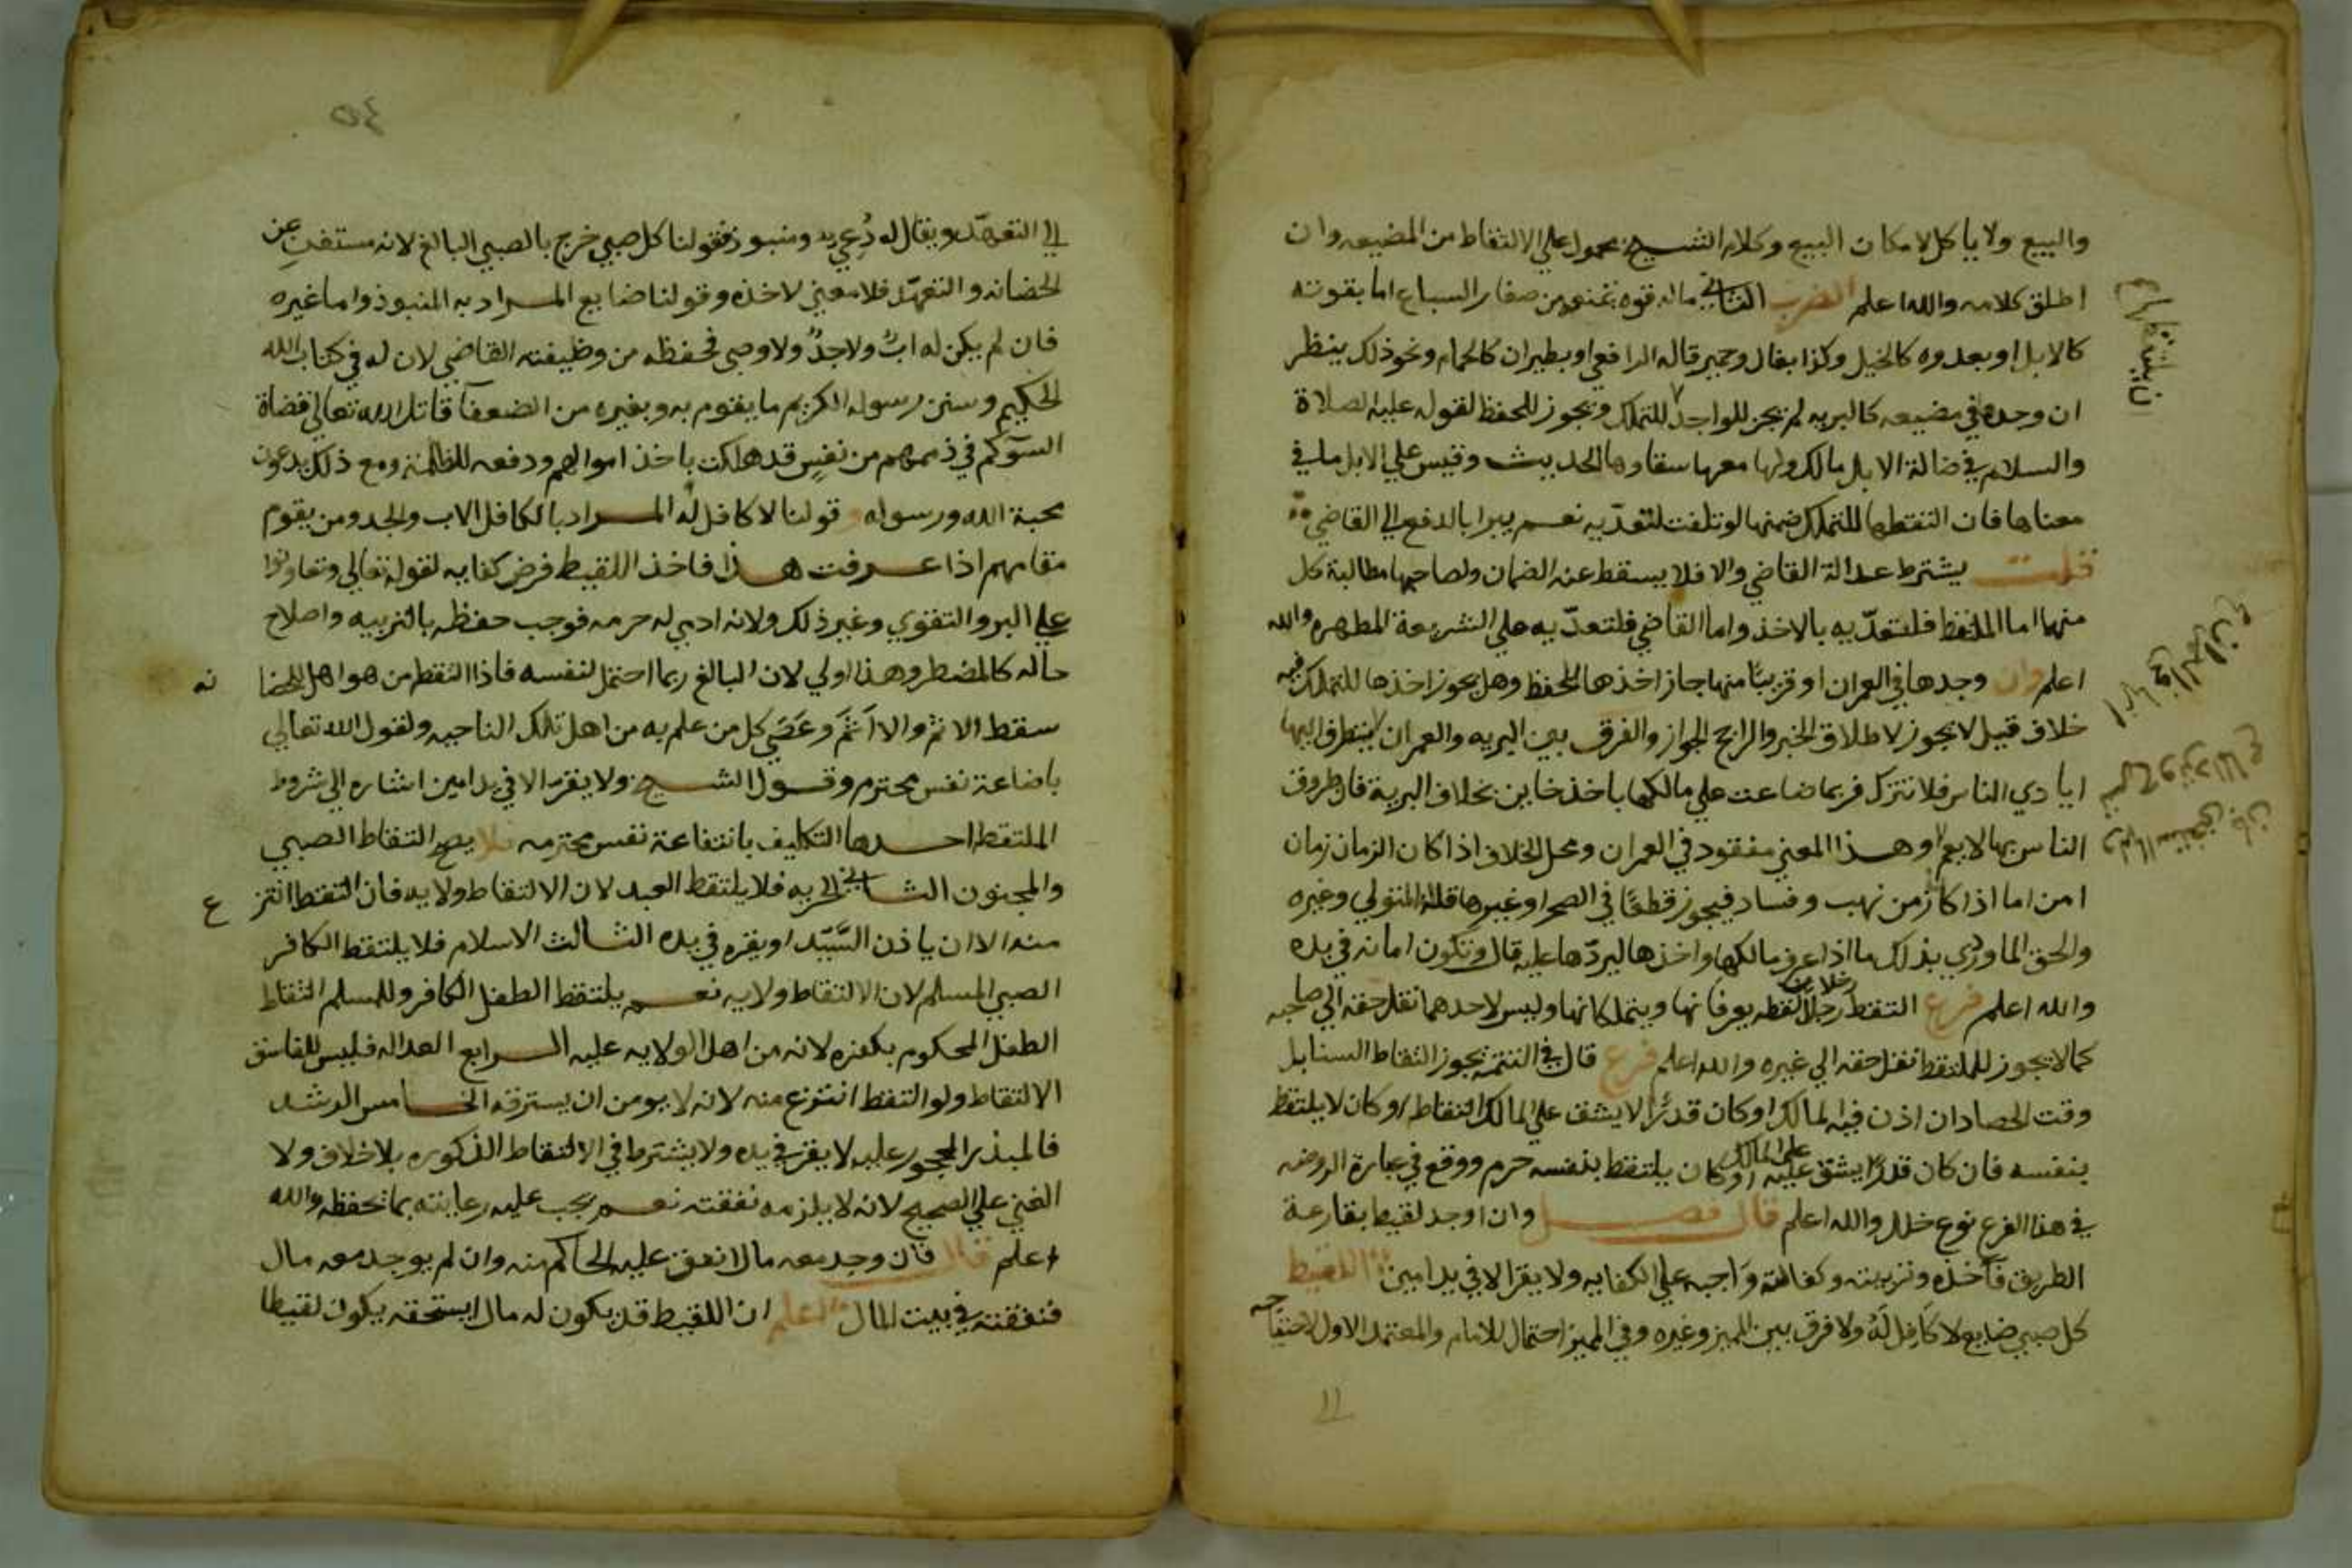 والبيع ولا ياكل لامكان البيع وكلام الشيخ محمول علي الالتقاط من المضيعه وان
اطلق كلامه والله اعلم الضرب الثاني ماله قوه تمنعه من صغار السباع اما بقوته
كالابل او بعدوه كالخيل وكذا بغال وحمير قاله الرافعي او بطيران كالحمام ونحو ذلك ينظر
ان وجده في مضيعه كالبريه لم يجز للواجد للتملك ويجوز للحفظ لقوله عليه الصلاة
والسلام في ضالة الابل مالك ولها معها سقاوها الحديث وقيس علي الابل ما في
معناها فان التقطها للتملك ضمنها لو تلفت لتعديه نعم يبرا بالدفع الي القاضي
قلت يشترط عدالة القاضي والا فلا يسقط عنه الضمان ولصاحبها مطالبة كل
منهما اما الملتقط فلتعدّيه بالاخذ واما القاضي فلتعدّيه علي الشريعة المطهره والله
اعلم وان وجدها في العمران او قريبًا منها جاز اخذها للحفظ وهل يجوز اخذها للتملك فيه
خلاف قيل لا يجوز لاطلاق الخبر والراجح الجواز والفرق بين البريه والعمران يتطرق اليها
ايادي الناس فلا تترك فربما ضاعت علي مالكها باخذ خاين بخلاف البرية فان طروق
الناس بها لا يعم وهذا المعني مفقود في العمران ومحل الخلاف اذا كان الزمان زمان
امن اما اذا كان زمن نهب وفساد فيجوز قطعًا في الصحرا وغيرها قاله المتولي وغيره
والحق الماوردي بذلك ما اذا عرف مالكها واخذها ليردّها عليه قال وتكون امانه في يده
والله اعلم فرع التقط رجلان لقطه يعرفانها ويتملكانها وليس لاحدهما نقل حقه الي صاحبه
كما لا يجوز للملتقط نقل حقه الي غيره والله اعلم فرع قال في التتمه يجوز التقاط السنابل
وقت الحصاد ان اذن فيه المالك او كان قدرًا لا يشق علي المالك التقاطه او كان لا يلتقط
بنفسه فان كان قدرًا يشق عليه او كان يلتقط بنفسه حرم ووقع في عبارة الروضه
علي المالك
في هذا الفرع نوع خلل والله اعلم قال فصل وان وجد لقيط بقارعة
الطريق فاخذه وتربيته وكفالته واجبه علي الكفايه ولا يقر الا في يد امين اللقيط
كل صبي ضايع لا كافل له ولا فرق بين المميز وغيره وفي المميز احتمال للامام والمعتمد الاول لاحتياجه
الي التعهّد ويقال له دعي ومنبوذ فقولنا كل صبي خرج بالصبي البالغ لانه مستغن عن
الحضانه والتعهّد فلا معني لاخذه وقولنا ضايع المراد به المنبوذ واما غيره
فان لم يكن له ابٌ ولا جدٌ ولا وصي فحفظه من وظيفته القاضي لان له في كتاب الله
الحكيم وسنن رسوله الكريم ما يقوم به وبغيره من الضعفآ قاتل الله تعالي قضاة
السوء كم في ذممهم من نفسٍ قد هلكت باخذ اموالهم ودفعه للظلمة ومع ذلك يدعون
محبة الله ورسوله وقولنا لا كافل له المراد بالكافل الاب والجد ومن يقوم
مقامهم اذا عرفت هذا فاخذ اللقيط فرض كفايه لقوله تعالي وتعاونوا
علي البر والتقوي وغير ذلك ولانه ادمي له حرمه فوجب حفظه بالتربيه واصلاح
حاله كالمضطر وهذا اولي لان البالغ ربما احتمل لنفسه فاذا التقط من هو اهل للحضا نه
سقط الاثم والا اَثِمَ وعَصَي كل من علم به من اهل تلك الناحيه ولقول الله تعالي
باضاعة نفس محترم وقول الشيخ ولا يقرّ الا في يد امين اشاره الي شروط
الملتقط احدها التكليف بانتفاعة نفس محترمه فلا يصح التقاط الصبي
والمجنون الثاني الحريه فلا يلتقط العبد لان الالتقاط ولايه فان التقط انتز ع
منه الا ان ياذن السَّيّد او يقره في يده الثالث الاسلام فلا يلتقط الكافر
الصبي المسلم لان الالتقاط ولايه نعم يلتقط الطفل الكافر وللمسلم التقاط
الطفل المحكوم بكفره لانه من اهل الولايه عليه الرابع العداله فليس للفاسق
الالتقاط ولو التقط انتزع منه لانه لا يومن ان يسترقه الخامس الرشد
فالمبذر المحجور عليه لا يقر في يده ولا يشترط في الالتقاط الذكوره بلا خلاف ولا
الغني علي الصحيح لانه لا يلزمه نفقته نعم يجب عليه رعايته بما يحفظه والله
اعلم قال فان وجد معه مال انفق عليه الحاكم منه وان لم يوجد معه مال
فنفقته في بيت المال اعلم ان اللقيط قد يكون له مال يستحقه بكونه لقيطا